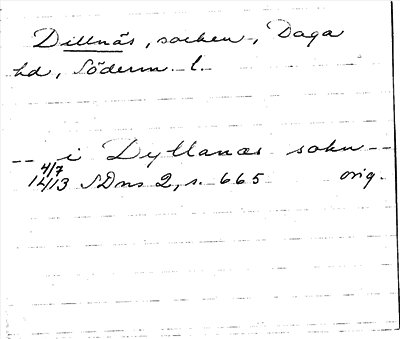 Dillnäs, socken, Daga
hd, Söderm. l.
-- i Dyllanæs sokn --
4/7
1413 SDns 2, s. 665 orig.